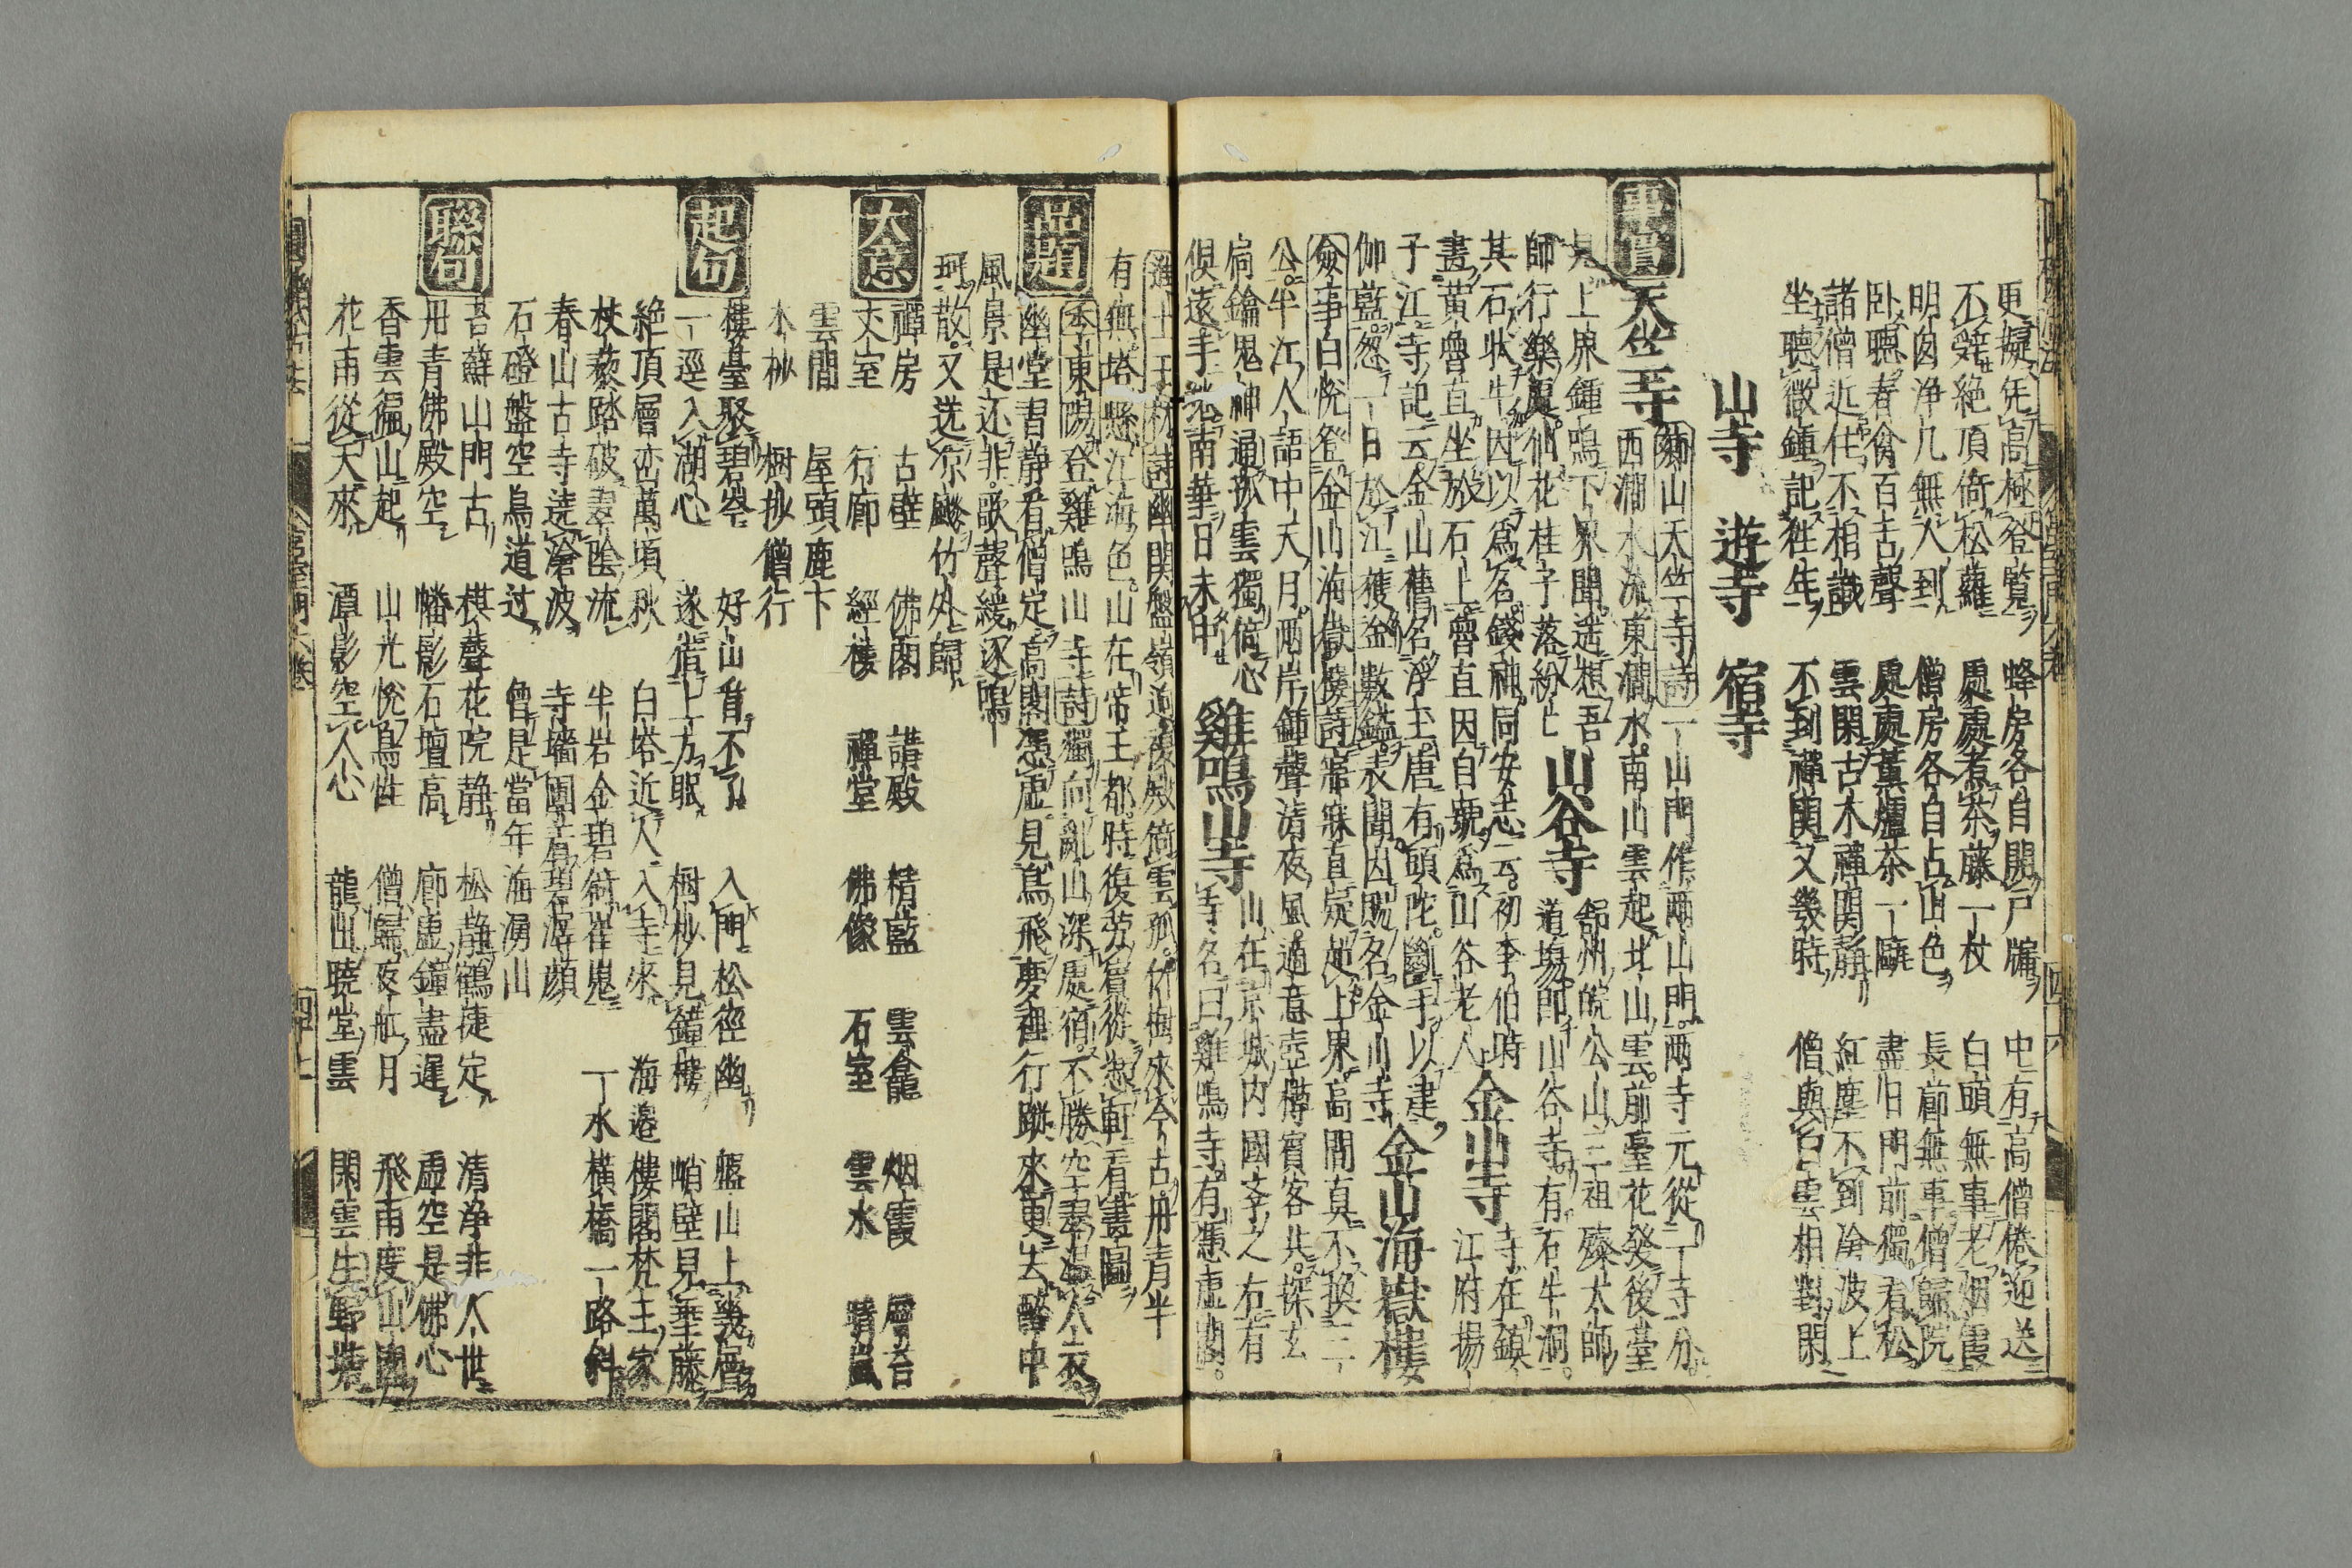 更凝凭高極登覧 蜂房各自開戸牖 中有高僧倦迎送
不辤絶頂倚松蘿 處處煮茶藤一杖 白頭無事老烟霞
明囱浄几無人到 僧房各自占山色 長廊無事僧歸院
卧聴春禽百舌聲 處處薫爐茶一甌 盡日門前獨看松
諸僧近住不相識 雲閑古木禪関静 紅塵不到滄波上
坐聴微鍾記徃年 不到禪関又幾時 僧與白雲相對閑
山寺 遊寺 宿寺
事實 天竺寺 山天竺寺詩 一山門作兩山門兩寺元從一寺分
西澗水流東澗水南山雲起北山雲前臺花發後臺
見上界鍾鳴下界聞遥想吾 山谷寺 舒州皖公山三祖璨大師
師行樂處仙花桂子落紛匕 道塲即山谷寺有石牛洞
其石状牛因以爲名錢神同安志云初李伯時 金山寺 寺在鎮
畫黄魯直坐於石上魯直因自號爲山谷老人 江府揚
子江寺記云金山舊名浮玉唐有頭陀斷手以建 金山海嶽樓
伽藍忽一日於江獲金數鎰表聞因賜名金山寺
僉事白悦登金山海嶽樓詩 寤寐直疑超上界高閒真不換三
公半江人語中天月兩岸鍾聲清夜風適意壺樽賓客共探玄
扃鑰鬼神通孤雲獨倚心 雞鳴山寺 山在京城内國子之右有
倶遠手 南華日未中 寺名曰雞鳴寺有憑虚閣
詩 幽関盤嶺逈 雲孤竹樹來今古丹青半
有無塔懸江海色山在帝王都時復労賓從 軒看畫圖
品題 李東陽登雞鳴山寺詩 獨向亂山深處宿不勝空翠濕人衣
幽堂書静看僧定高閣憑虚見鳥飛夢裡行蹤來更去醉中
風景是还非歌聲緩逐鳴
珂散又送凉飈竹外歸
大意 禪房 古壁 佛閣 講殿 精藍 雲龕 烟霞 層岩
丈室 行廊 經樓 禪堂 佛像 石室 雲水 晴嵐
雲間 屋頭鹿下
木杪 樹抄僧行
起句 樓臺聚碧岑 好山看不了 入門松徑幽 盤山上幾層
一逕入湖心 遂借上方眠 樹杪見鐘樓 峭壁見垂藤
絶頂層峦萬頃秋 白塔近人入寺來 海邉樓閣梵王家
杖藜踏破翠陰流 半岩金碧樹崔嵬 一水横橋一路斜
春山古寺遶滄波 寺墻團 顔
石磴盤空鳥道过 曾是當年海湧山
聯句 苔蘚山門古 棋聲花院静 松静鶴捷定 清浄非人世
丹青佛殿空 幡影石壇高 廊虚鐘盡遲 虚空是佛心
香雲徧山起 山光悦鳥性 僧歸夜舡月 飛雨度山
花雨從天來 潭影空人心 龍出曉堂雲 閑雲生野塘